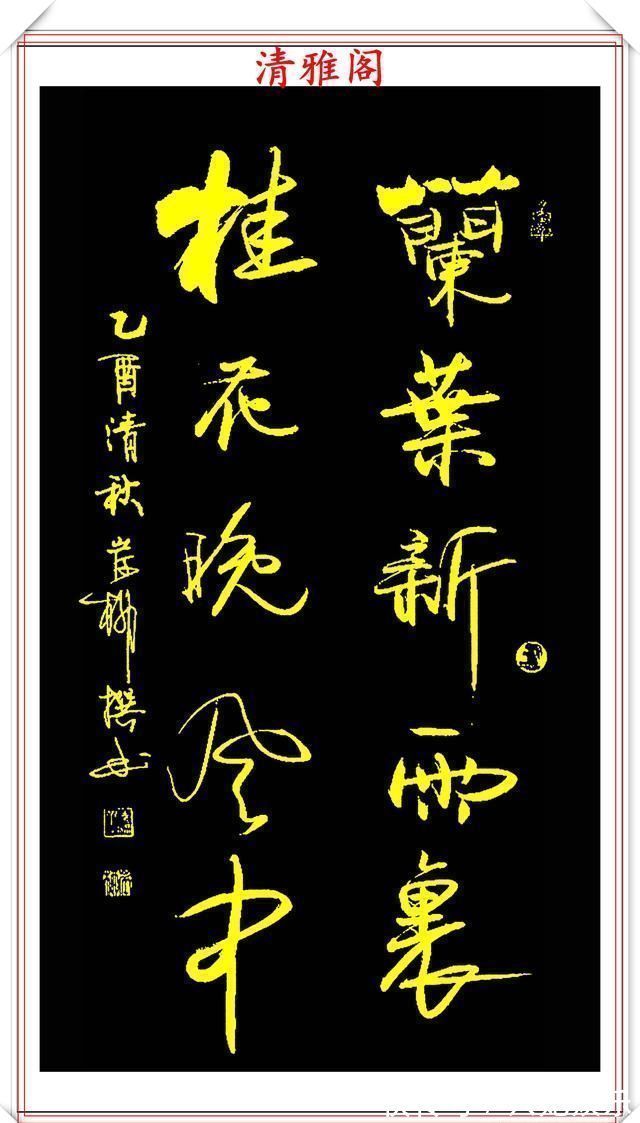 清雅阁
蘭葉新雨裏
桂花晚风中
乙酉清秋崖柳撰书